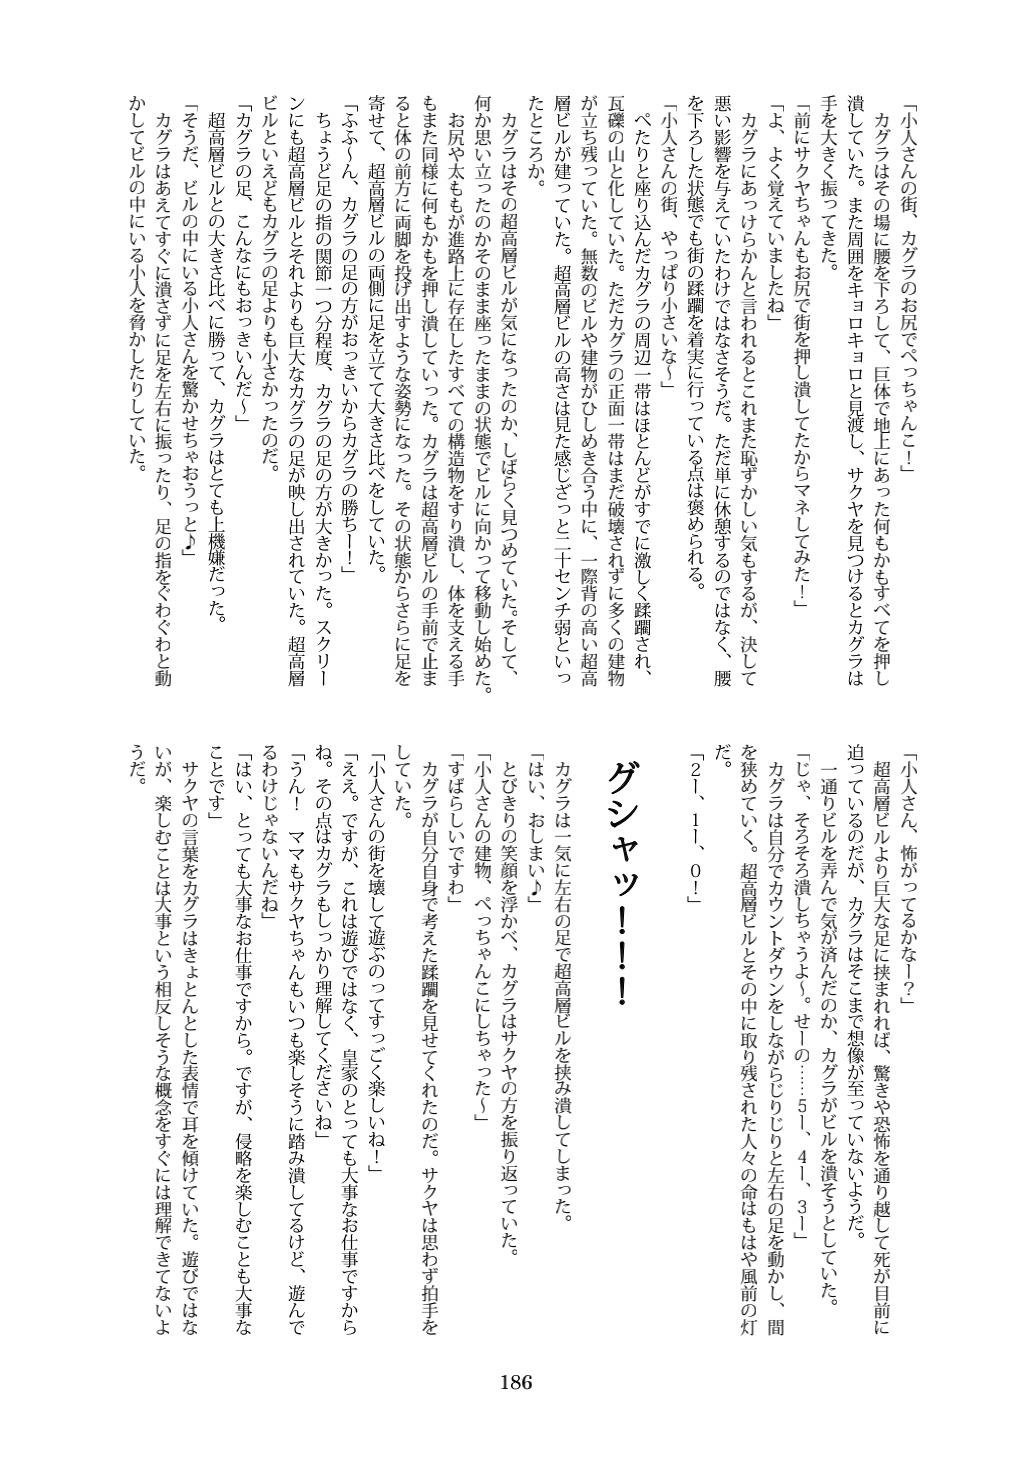 「小人さんの街、カグラのお尻でぺっちゃんこ！」
　カグラはその場に腰を下ろして、巨体で地上にあった何もかもすべてを押し
潰していた。また周囲をキョロキョロと見渡し、サクヤを見つけるとカグラは
手を大きく振ってきた。
「前にサクヤちゃんもお尻で街を押し潰してたからマネしてみた！」
「よ、よく覚えていましたね」
　カグラにあっけらかんと言われるとこれまた恥ずかしい気もするが、決して
悪い影響を与えていたわけではなさそうだ。ただ単に休憩するのではなく、腰
を下ろした状態でも街の蹂躙を着実に行っている点は褒められる。
「小人さんの街、やっぱり小さいな〜」
　ぺたりと座り込んだカグラの周辺一帯はほとんどがすでに激しく蹂躙され、
瓦礫の山と化していた。ただカグラの正面一帯はまだ破壊されずに多くの建物
が立ち残っていた。無数のビルや建物がひしめき合う中に、一際背の高い超高
層ビルが建っていた。超高層ビルの高さは見た感じざっと二十センチ弱といっ
たところか。
　カグラはその超高層ビルが気になったのか、しばらく見つめていた。そして、
何か思い立ったのかそのまま座ったままの状態でビルに向かって移動し始めた。
　お尻や太ももが進路上に存在したすべての構造物をすり潰し、体を支える手
もまた同様に何もかもを押し潰していった。カグラは超高層ビルの手前で止ま
ると体の前方に両脚を投げ出すような姿勢になった。その状態からさらに足を
寄せて、超高層ビルの両側に足を立てて大きさ比べをしていた。
「ふふ〜ん、カグラの足の方がおっきいからカグラの勝ちー！」
　ちょうど足の指の関節一つ分程度、カグラの足の方が大きかった。スクリー
ンにも超高層ビルとそれよりも巨大なカグラの足が映し出されていた。超高層
ビルといえどもカグラの足よりも小さかったのだ。
「カグラの足、こんなにもおっきいんだ〜」
　超高層ビルとの大きさ比べに勝って、カグラはとても上機嫌だった。
「そうだ、ビルの中にいる小人さんを驚かせちゃおうっと♪」
　カグラはあえてすぐに潰さずに足を左右に振ったり、足の指をぐわぐわと動
かしてビルの中にいる小人を脅かしたりしていた。
「小人さん、怖がってるかなー？」
　超高層ビルより巨大な足に挟まれれば、驚きや恐怖を通り越して死が目前に
迫っているのだが、カグラはそこまで想像が至っていないようだ。
　一通りビルを弄んで気が済んだのか、カグラがビルを潰そうとしていた。
「じゃ、そろそろ潰しちゃうよ〜。せーの……5ー、4ー、3ー」
　カグラは自分でカウントダウンをしながらじりじりと左右の足を動かし、間
を狭めていく。超高層ビルとその中に取り残された人々の命はもはや風前の灯
だ。
「2ー、1ー、0！」
グシャッ！！！
　カグラは一気に左右の足で超高層ビルを挟み潰してしまった。
「はい、おしまい♪」
　とびきりの笑顔を浮かべ、カグラはサクヤの方を振り返っていた。
「小人さんの建物、ぺっちゃんこにしちゃった〜」
「すばらしいですわ」
　カグラが自分自身で考えた蹂躙を見せてくれたのだ。サクヤは思わず拍手を
していた。
「小人さんの街を壊して遊ぶのってすっごく楽しいね！」
「ええ。ですが、これは遊びではなく、皇家のとっても大事なお仕事ですから
ね。その点はカグラもしっかり理解してくださいね」
「うん！　ママもサクヤちゃんもいつも楽しそうに踏み潰してるけど、遊んで
るわけじゃないんだね」
「はい、とっても大事なお仕事ですから。ですが、侵略を楽しむことも大事な
ことです」
　サクヤの言葉をカグラはきょとんとした表情で耳を傾けていた。遊びではな
いが、楽しむことは大事という相反しそうな概念をすぐには理解できてないよ
うだ。
186